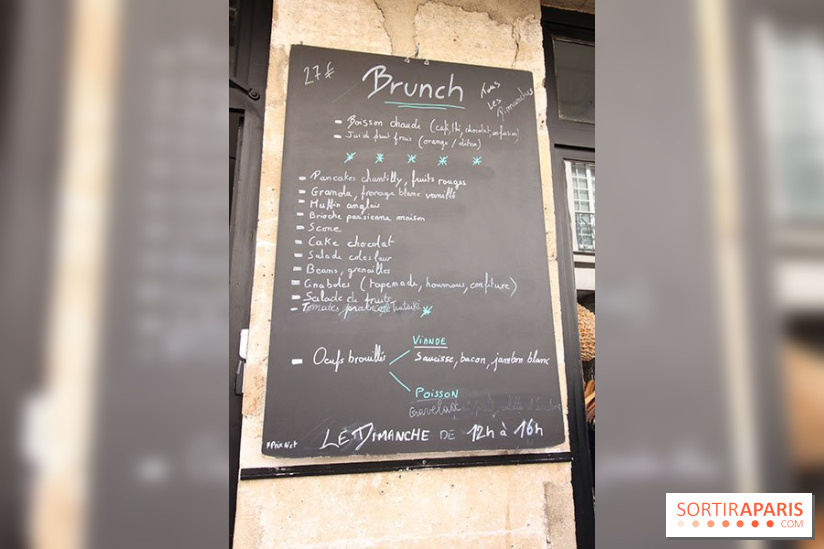 27€
Brunch
Tous
Les
Dimanches
- Boisson chaude (café, thé, chocolat, infusion)
- Jus de fruit frais (orange / citron)
- Pancakes chantilly, fruits rouges
- Granola, fromage blanc vanillé
- Muffin anglais
- Brioche parisienne maison
- Scone
- Cake chocolat
- Salade coleslaw
- Beans, grenailles
- Gnaboles (tapenade, houmous, confiture)
- Salade de fruits
- Tomates
- Oeufs brouillés
VIANDE
Saucisse, bacon, jambon blanc
POISSON
Gravelax
LE DIMANCHE DE 12h à 16h
* Prix Net
SORTIRAPARIS
.COM